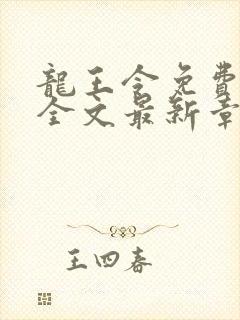 龍王令免費
全文最新章
王四春